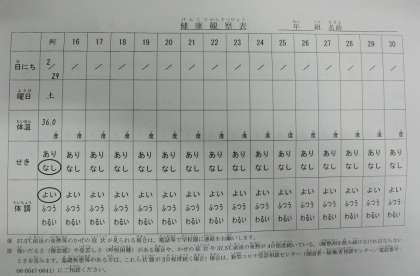 健康観察表 年 組 名前
例 16 17 18 19 20 21 22 23 24 25 26 27 28 29 30
日にち 2/29 / / / / / / / / / / / / / / /
曜日 土
体温 36.0 度 度 度 度 度 度 度 度 度 度 度 度 度 度 度 度
せき あり あり あり あり あり あり あり あり あり あり あり あり あり あり あり あり
なし なし なし なし なし なし なし なし なし なし なし なし なし なし なし なし
体調 よい よい よい よい よい よい よい よい よい よい よい よい よい よい よい よい
ふつう ふつう ふつう ふつう ふつう ふつう ふつう ふつう ふつう ふつう ふつう ふつう ふつう ふつう ふつう ふつう
わるい わるい わるい わるい わるい わるい わるい わるい わるい わるい わるい わるい わるい わるい わるい わるい
※ 37.5℃前後の発熱等のかぜの症状が見られる場合は、電話等で学校園に連絡をお願いします。